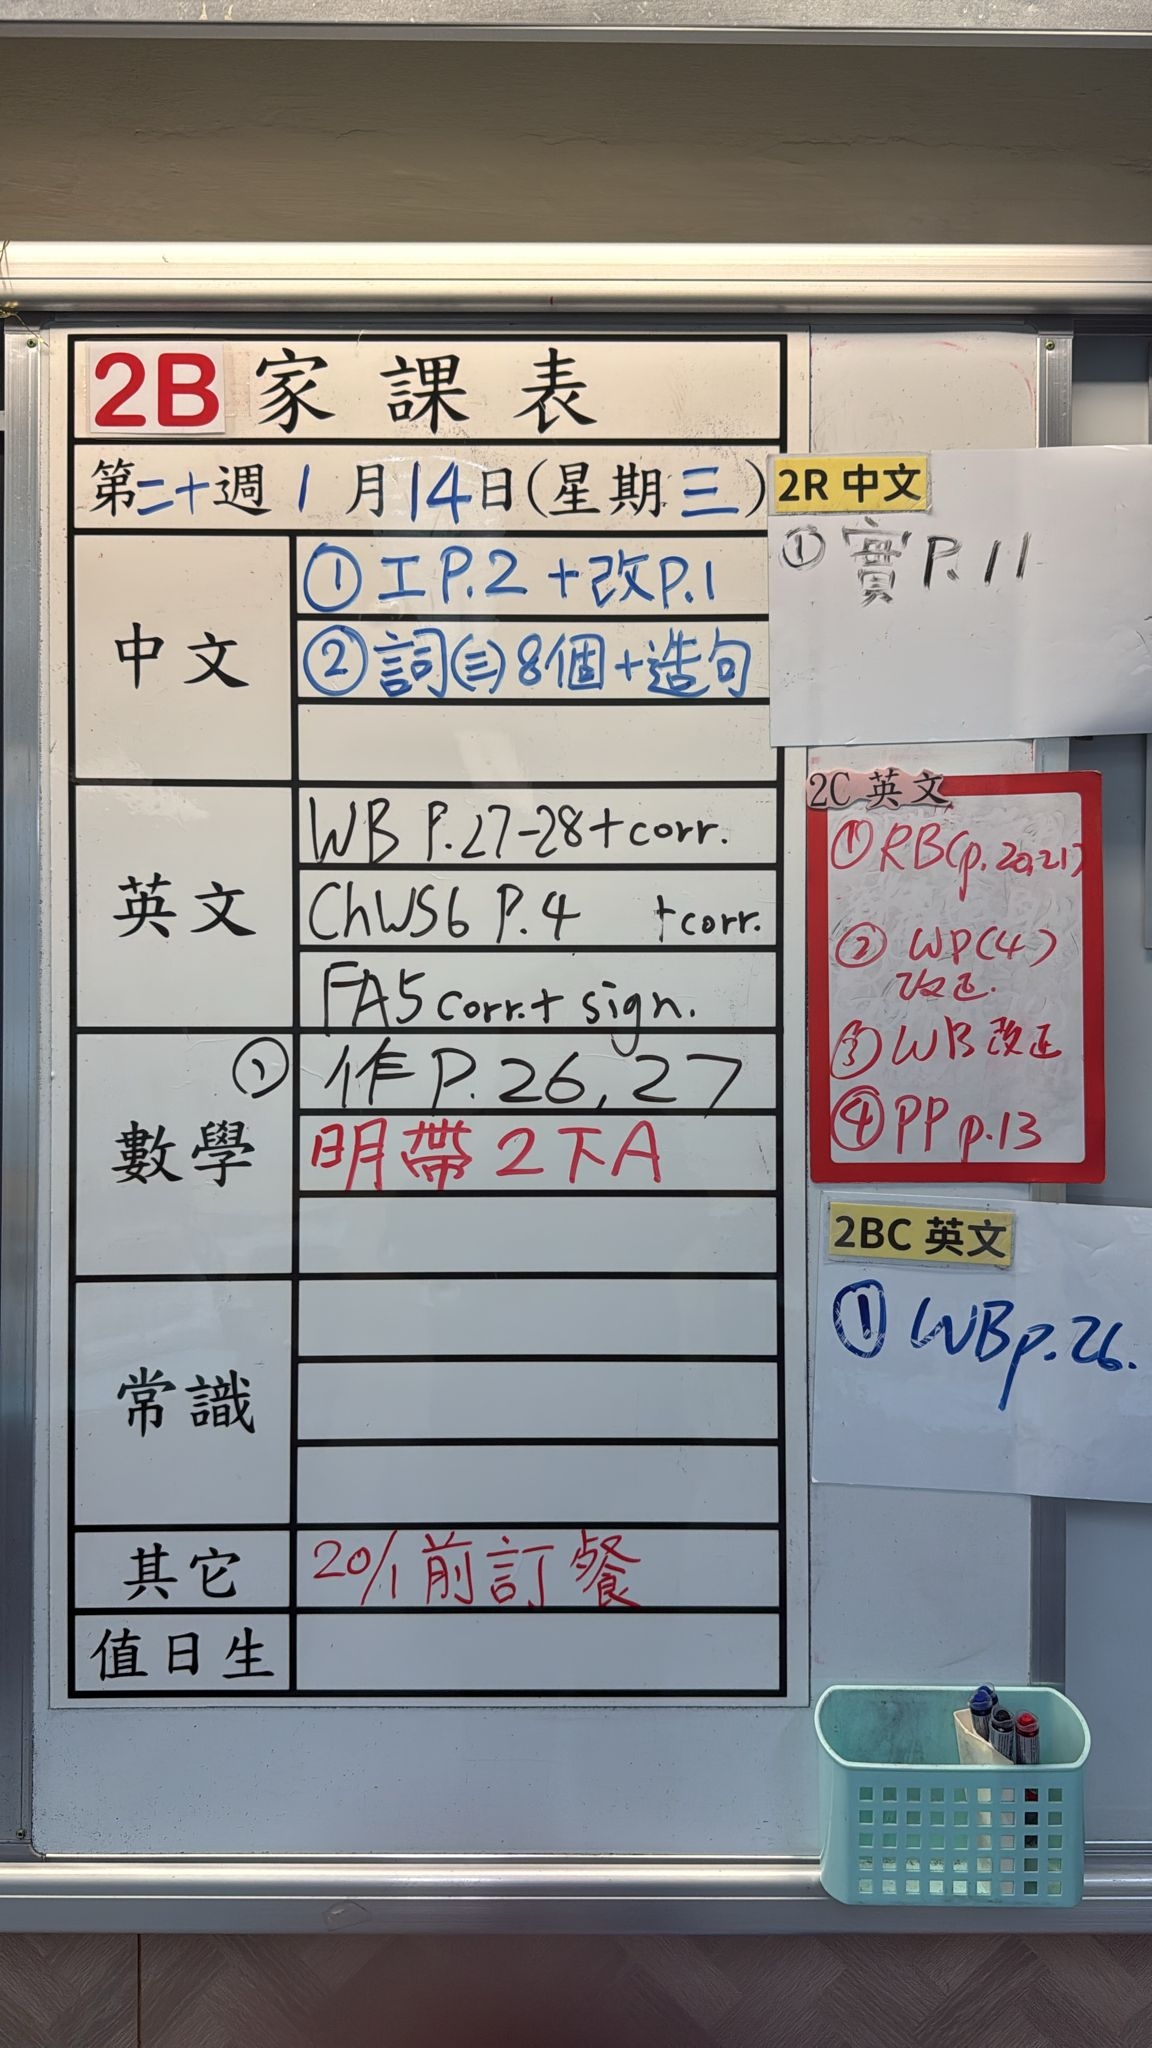 2B 家課表
第二十週 1月14日(星期三)
中文
① 工P.2 +改P.1
② 詞(三)8個+造句
英文
WB P.27-28+corr.
ChWS6 P.4 +corr.
FA5 corr.+ sign.
數學
① 作P.26,27
明帶2下A
常識
其它
20/1前訂餐
值日生
2R 中文
① 實P.11
2C 英文
① RB(p.20,21)
② WP(4)
改正.
③ WB改正
④ PP p.13
2BC 英文
① WBp.26.